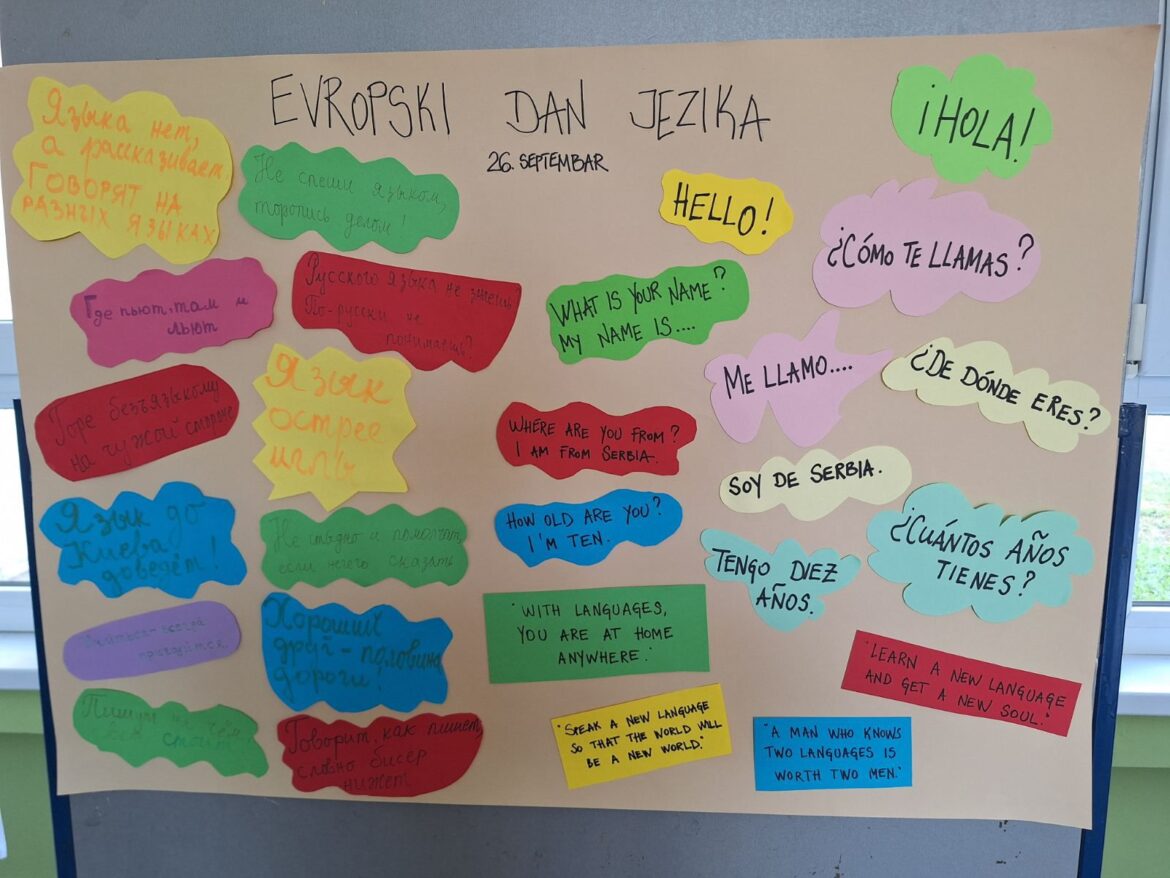 EVROPSKI DAN JEZIKA
26. SEPTEMBAR
Языка нет,
а рассказывает
ГОВОРЯТ НА
РАЗНЫХ ЯЗЫКАХ
Не спеши языком,
торопись делом!
Где пьют, там и
льют
Русского языка не знаешь,
По-русски не
понимаешь?
Горе безъязыкому
на чужой стороне
Язык
острее
иглы
Язык до
Киева
доведёт!
Не стыдно и помолчать,
если нечего сказать
всегда
пригодится
Хороший
друг - половина
дороги!
Говорит, как пишет,
словно бисер
нижет
HELLO!
WHAT IS YOUR NAME?
MY NAME IS....
WHERE ARE YOU FROM?
I AM FROM SERBIA.
HOW OLD ARE YOU?
I'M TEN.
"WITH LANGUAGES,
YOU ARE AT HOME
ANYWHERE."
"SPEAK A NEW LANGUAGE
SO THAT THE WORLD WILL
BE A NEW WORLD."
¡HOLA!
¿CÓMO TE LLAMAS?
ME LLAMO....
¿DE DÓNDE ERES?
SOY DE SERBIA.
¿CUÁNTOS AÑOS
TIENES?
TENGO DIEZ
AÑOS.
"LEARN A NEW LANGUAGE
AND GET A NEW SOUL."
"A MAN WHO KNOWS
TWO LANGUAGES IS
WORTH TWO MEN."